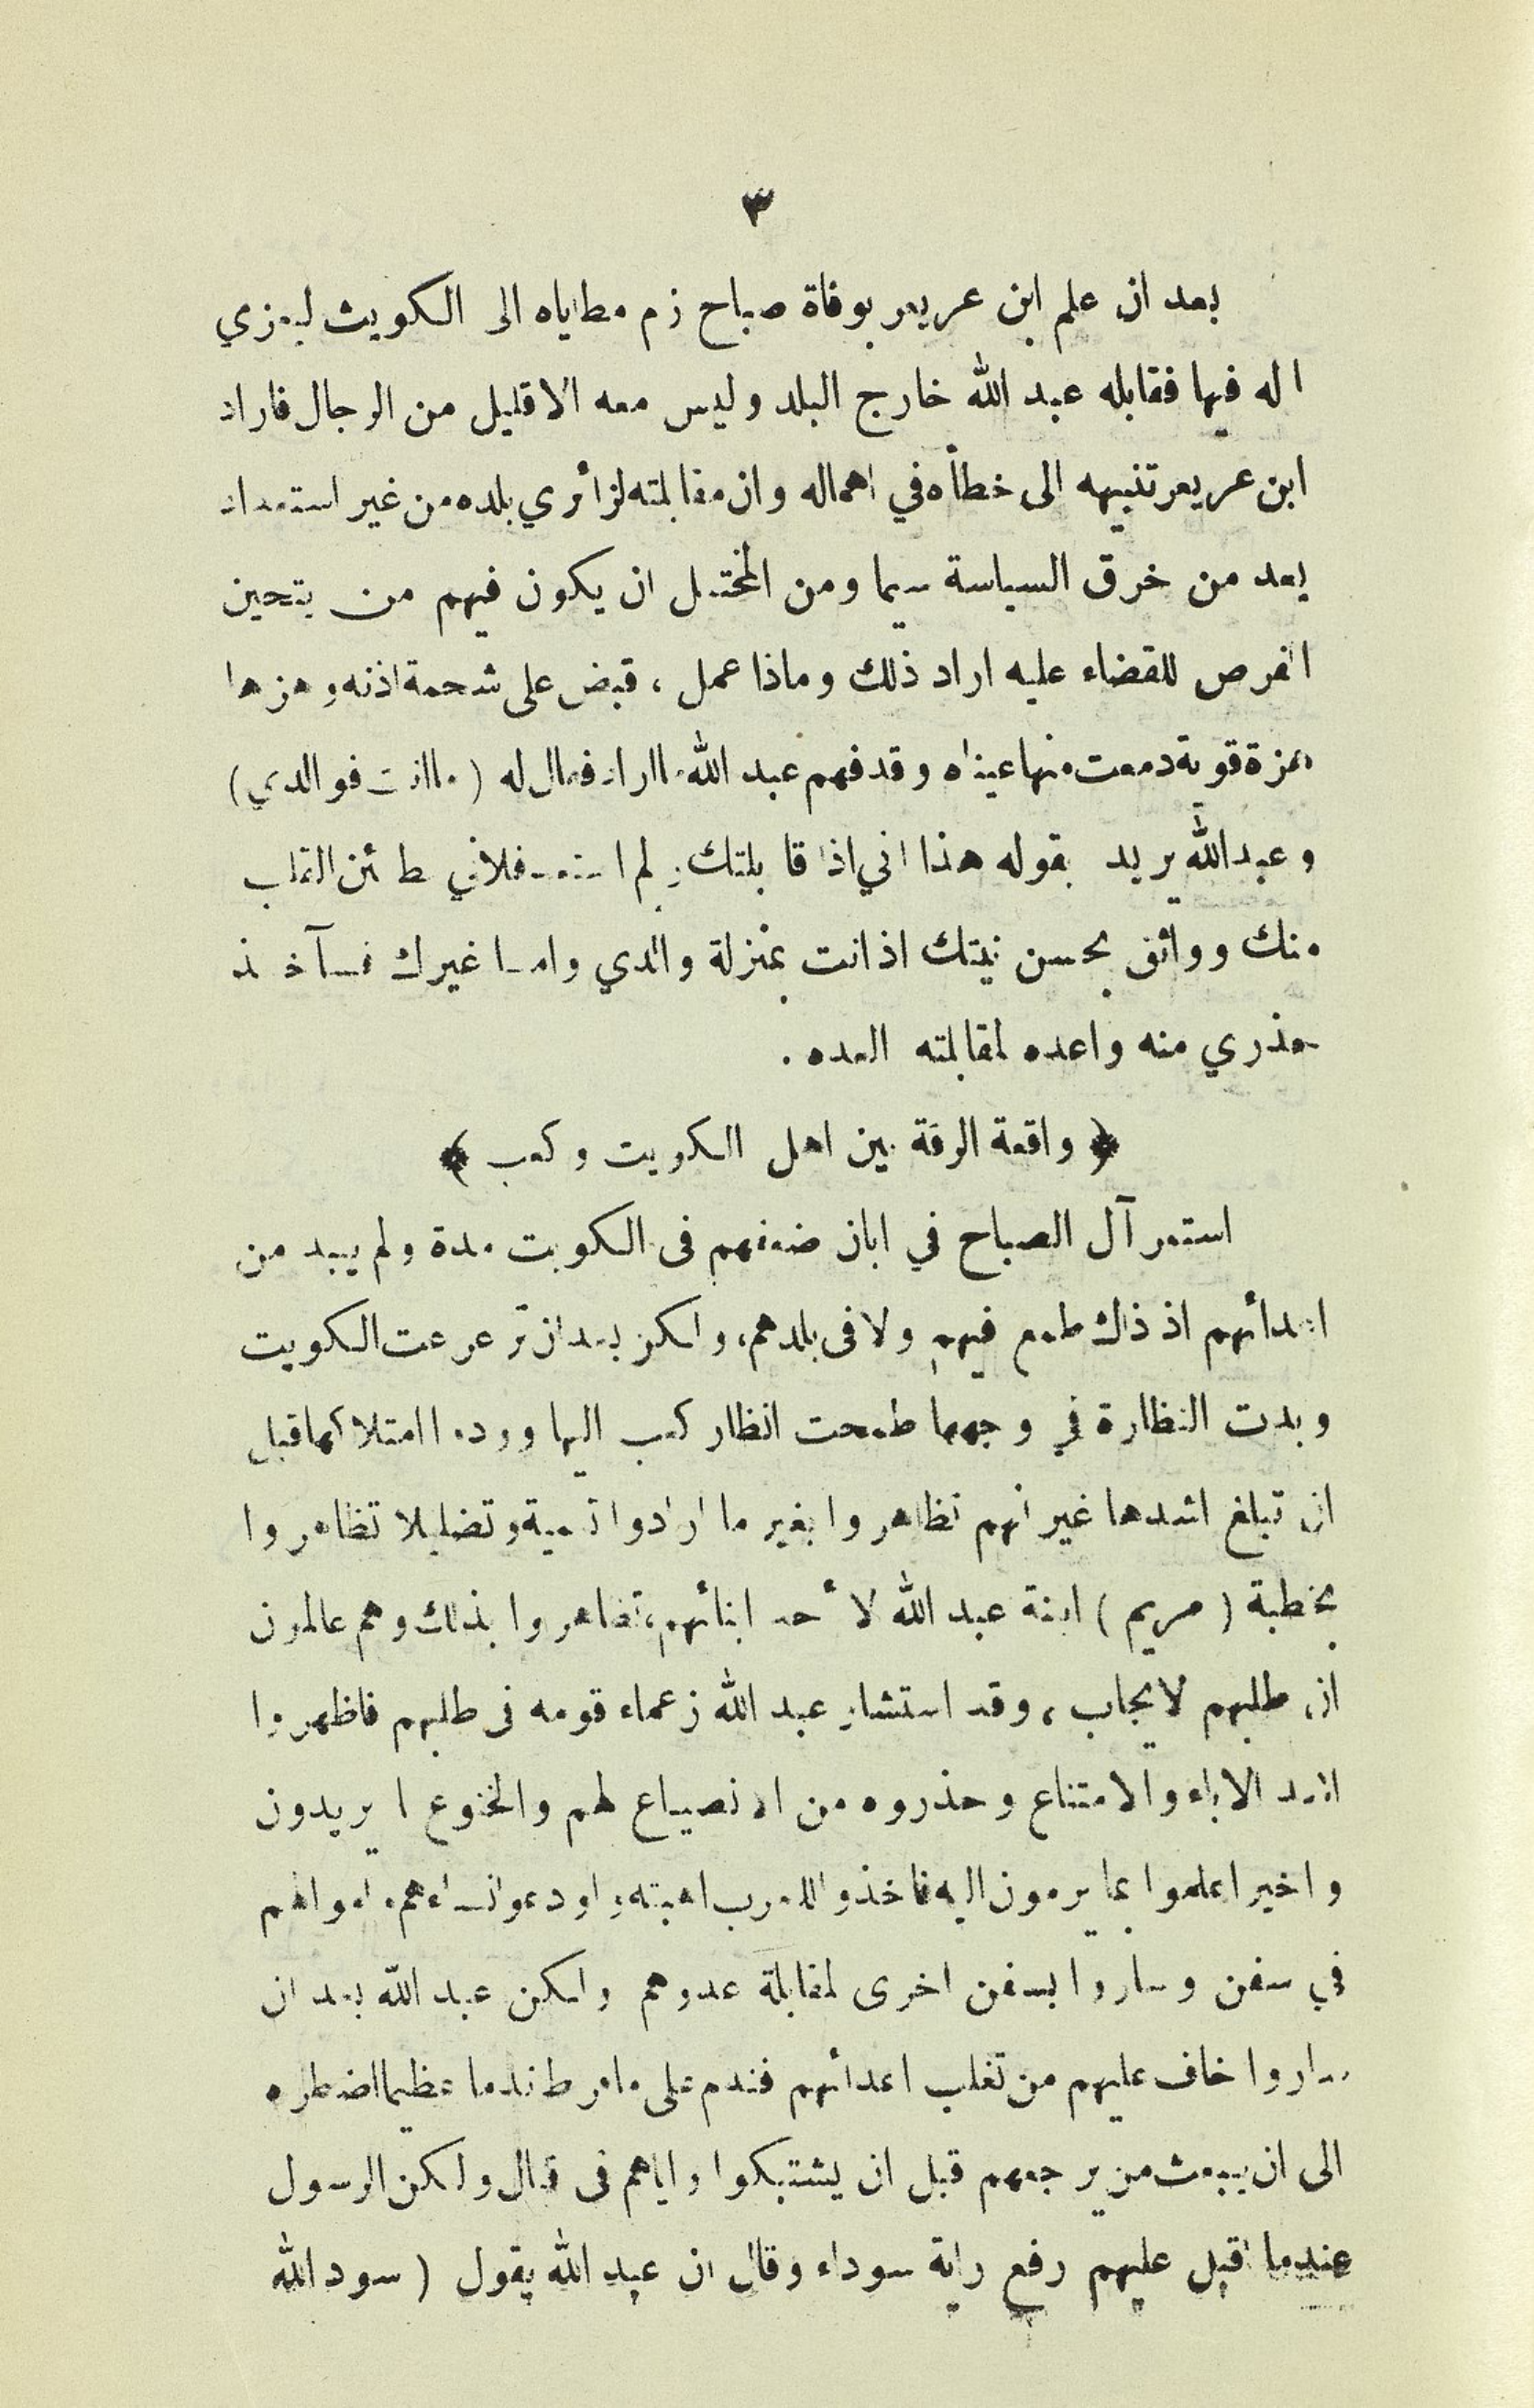 ٣
بعد ان علم ابن عريعر بوفاة صباح زم مطاياه الى الكويت ليعزي
اله فيها فقابله عبد الله خارج البلد وليس معه الا قليل من الرجال فاراد
ابن عريعر تنبيهه الى خطأه في اهماله وان مقابلته لزائري بلده من غير استعداد
يعد من خرق السياسة سيما ومن المحتمل ان يكون فيهم من يتحين
الفرص للقضاء عليه اراد ذلك وماذا عمل ، قبض على شحمة اذنه وهزها
هزة قوية دمعت منها عيناه وقد فهم عبد الله ما اراد فقال له ( ما انت فو الدي )
وعبد الله يريد بقوله هذا اني اذا قابلتك ولم استعد فلاني مطمئن القلب
منك وواثق بحسن نيتك اذ انت بمنزلة والدي واما غيرك فسآخذ
حذري منه واعده لمقابلته العده .
﴿ واقعة الرقة بين اهل الكويت وكعب ﴾
استمر آل الصباح في ابان ضعفهم فى الكويت مدة ولم يبد من
اعدائهم اذ ذاك طمع فيهم ولا فى بلدهم، ولكن بعد ان ترعرعت الكويت
وبدت النظارة في وجهها طمحت انظار كعب اليها وودوا امتلاكها قبل
ان تبلغ اشدها غير انهم تظاهروا بغير ما ارادوا تعمية وتضليلا تظاهروا
بخطبة ( مريم ) ابنة عبد الله لأحد ابنائهم، تظاهروا بذلك وهم عالمون
ان طلبهم لا يجاب ، وقد استشار عبد الله زعماء قومه فى طلبهم فاظهروا
اشد الاباء والامتناع وحذروه من الانصياع لهم والخنوع لما يريدون
واخيرا علموا بما يرمون اليه فاخذوا للحرب اهبته واودعوا نساءهم واموالهم
في سفن وساروا بسفن اخرى لمقابلة عدوهم ولكن عبد الله بعد ان
ساروا خاف عليهم من تغلب اعدائهم فندم على ما فرط ندما عظيما اضطره
الى ان يبعث من يرجعهم قبل ان يشتبكوا واياهم فى قتال ولكن الرسول
عندما اقبل عليهم رفع راية سوداء وقال ان عبد الله يقول ( سود الله